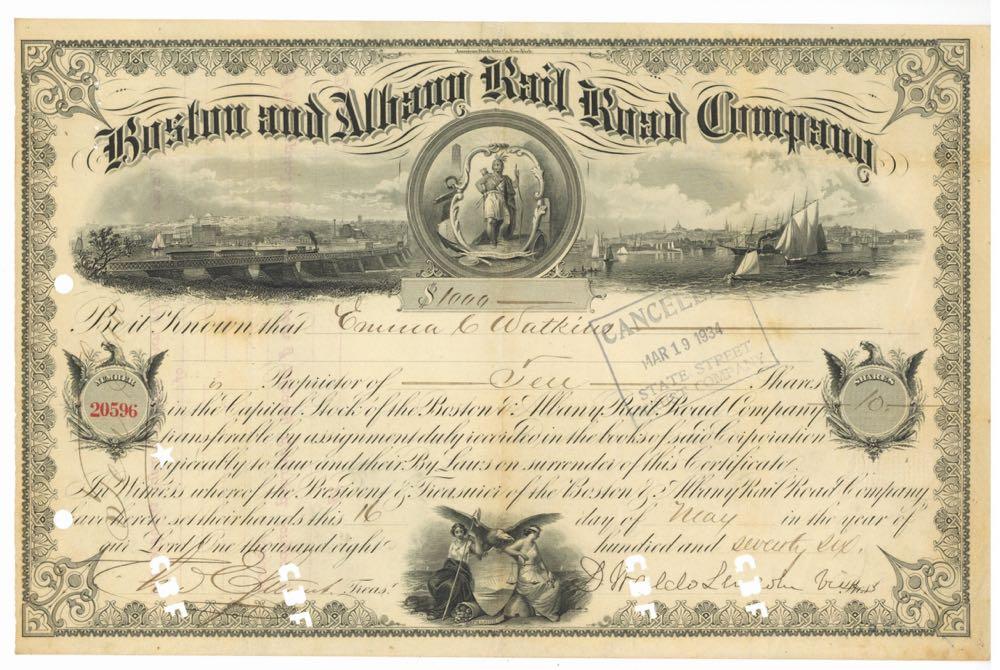 American Bank Note Co. New York.
Boston and Albany Rail Road Company
$1000
Be it Known that Emma C Watkins
CANCELLED
MAR 19 1934
STATE STREET
COMPANY
NUMBER
20596
SHARES
10
is Proprietor of Ten Shares
in the Capital Stock of the Boston & Albany Rail Road Company
transferable by assignment duly recorded in the books of said Corporation
agreeably to law and their By Laws on surrender of this Certificate.
In Witness whereof the President & Treasurer of the Boston & Albany Rail Road Company
have hereto set their hands this 16 day of May in the year of
our Lord One thousand eight hundred and seventy six.
Treas.
D Waldo Lincoln Vice Pres
CBF
CBF
CBF
CBF